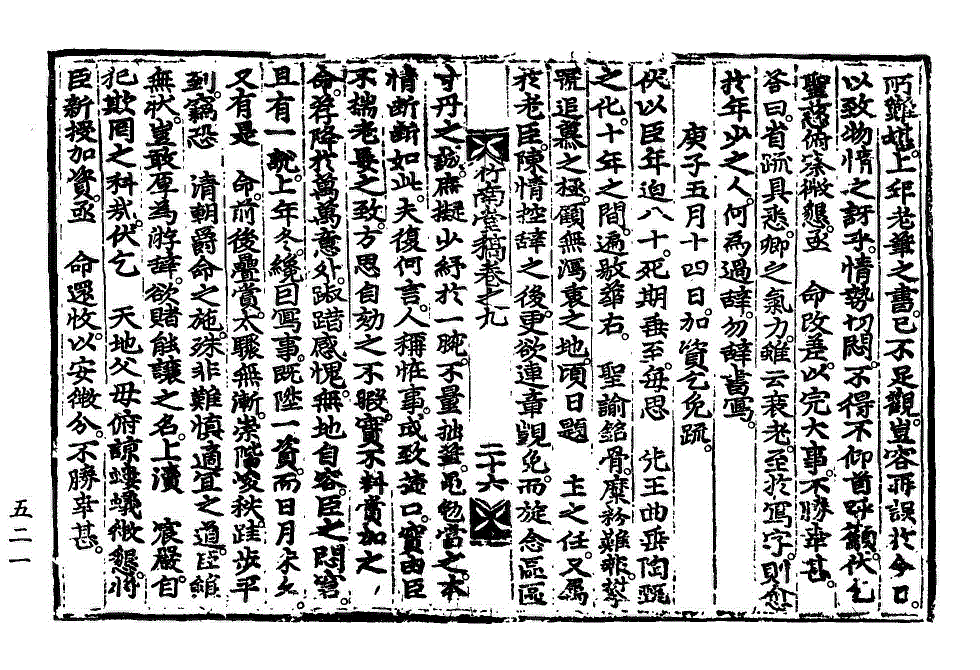 所難堪。上邱老筆之書。已不足觀。豈容再誤於今日。
以致物情之訝乎。情勢切悶。不得不仰首呼籲。伏乞
聖慈俯察微懇。亟 命改差。以完大事。不勝幸甚。
答曰。省疏具悉。卿之氣力。雖云衰老。至於寫字。則愈
於年少之人。何爲過辭。勿辭書寫。
庚子五月十四日。加資乞免疏。
伏以臣年迫八十。死期垂至。每思 先王曲垂陶甄
之化。十年之間。遍敭華右。 聖諭銘骨。糜粉難報。攀
號追慕之極。顧無瀉哀之地。頃日題 主之任。又屬
於老臣。陳情控辭之後。更欲連章覬免。而旋念區區
竹南堂稿卷之九 二十六
寸丹之誠。庶擬少紓於一脫。不量拙筆。黽勉當之。本
情斷斷如此。夫復何言。人稱恠事。或致譏口。實由臣
不揣老妄之致。方思自劾之不暇。實不料賞加之
命。荐降於萬萬意外。踧踖感愧。無地自容。臣之悶窘
且有一說。上年冬。纔曰寫事。既陞一資。而日月未久
又有是 命。前後疊賞。太驟無漸。崇階峻秩。跬步平
到。竊恐 淸朝爵命之施。殊非難愼適宜之道。臣雖
無狀。豈敢厚爲游辭。欲賭能讓之名。上瀆 宸嚴。自
犯欺罔之科哉。伏乞 天地父母俯諒螻蟻微懇。將
臣新授加資。亟 命還收。以安微分。不勝幸甚。
五二一